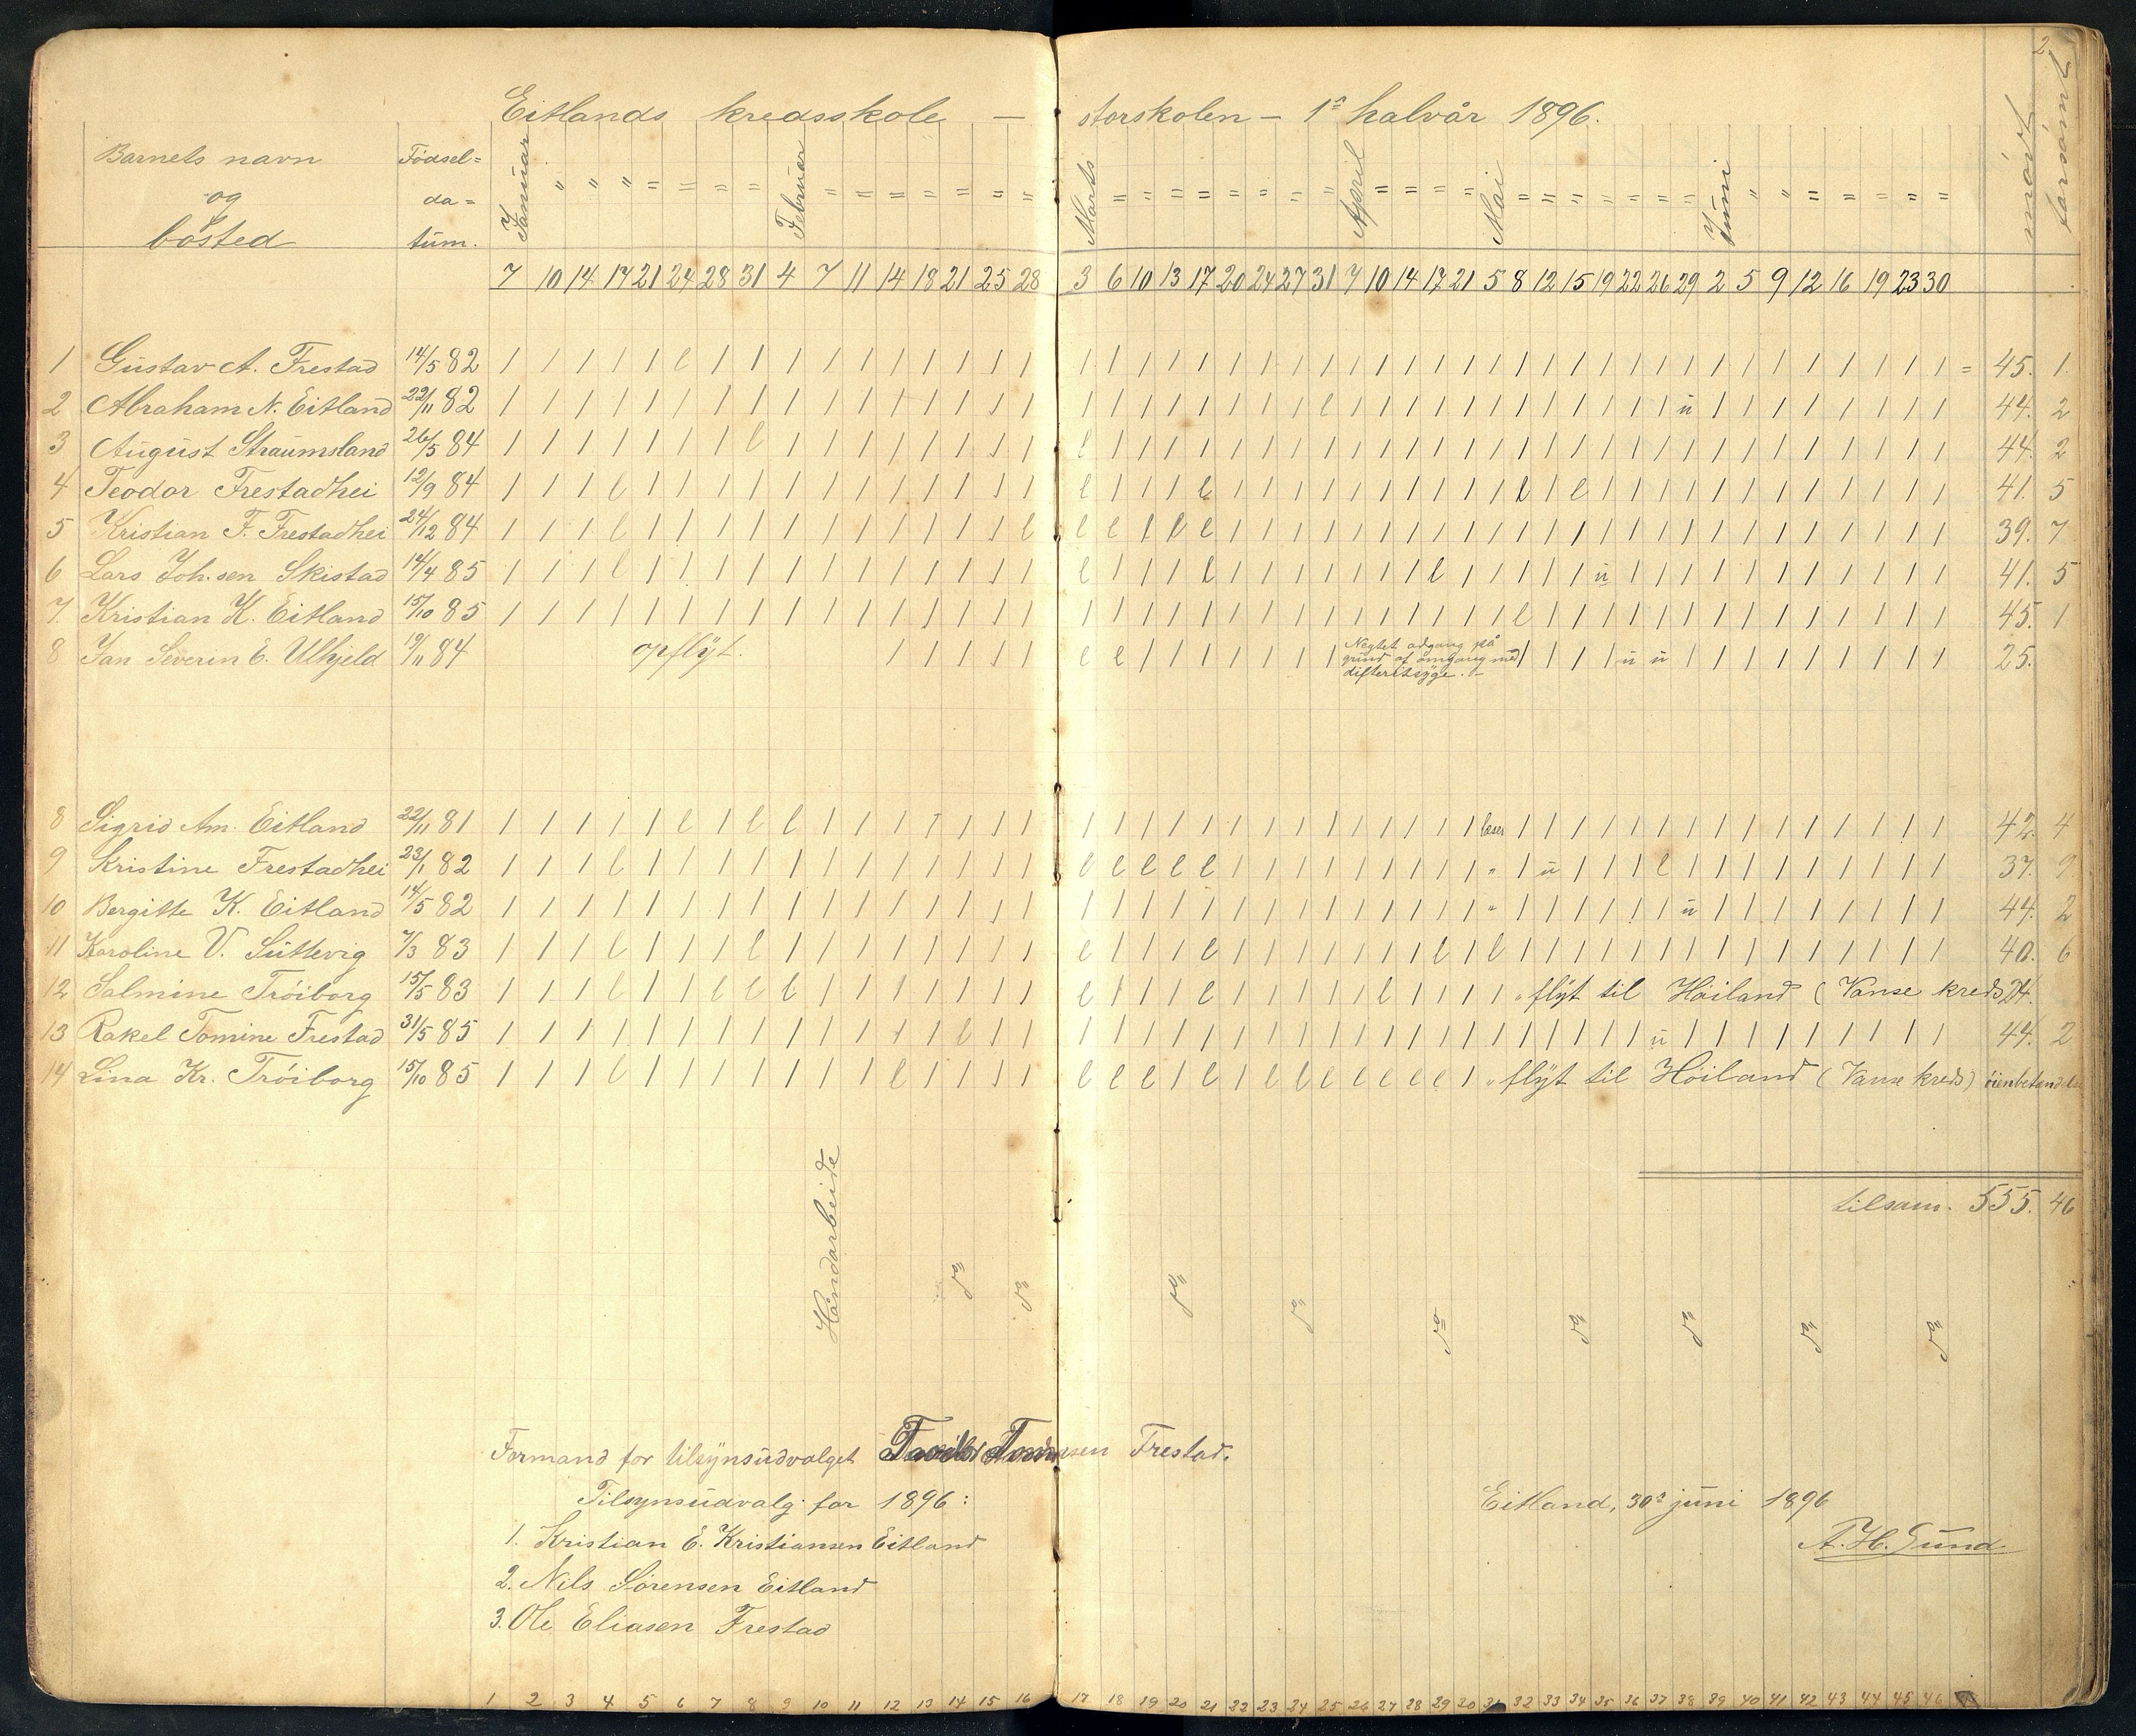 2
Eitlands kredsskole — storskolen – 1ste halvår 1896.
Barnets navn og bosted
Födsel=da=tum.
Januar " " " = = = = Februar = = = = = = = Marts = = = = = = = = April = = = = Mai = = = = = = = Juni " " = = = = =
mödt
forsömt
7 10 14 17 21 24 28 31 4 7 11 14 18 21 25 28 3 6 10 13 17 20 24 27 31 7 10 14 17 21 5 8 12 15 19 22 26 29 2 5 9 12 16 19 23 30
1 Gustav A. Frestad 14/5 82 | | | | | l | | | | | | | | | | | | | | | | | | | | | | | | | | | | | | | | | | | | | | | | = 45. 1.
2 Abraham N. Eitland 22/11 82 | | | | | | | | | | | | | | | | | | | | | | | | l | | | | | | | | | | | | ü | | | | | | | | 44. 2
3 August Straumsland 26/5 84 | | | | | | | l | | | | | | | | l | | | | | | | | | | | | | | | | | | | | | | | | | | | | | 44. 2
4 Teodor Frestadhei 12/9 84 | | | l | | | | | | | | | | | | l | | | l | | | | | | | | | | l | l | | | | | | | | | | | | 41. 5
5 Kristian F. Frestadhei 24/12 84 | | | l | | | | | | | | | | | l l l l l l | | | | | | | | | | | | | | | | | | | | | | | | | 39. 7
6 Lars Joh.sen Skistad 14/4 85 | | | l | | | | | | | | | | | | l | | | l | | | | | | | l | | | | | ü | | | | | | | | | | | 41. 5
7. Kristian K. Eitland 15/10 85 | | | | | | | | | | | | | | | | | | | | | | | | | | | | | | | l | | | | | | | | | | | | | | 45. 1
8 Jan Severin E. Ulhjeld 19/11 84 opflyt. | | | | | l l | | | | | | | Negtet adgang på
grund af omgang med
difteritsyge. – | | | | ü ü | | | | | | | | | 25.
8 Sigrid Am. Eitland 22/11 81 | | | | | l | l l | | | | | | | | | | | | | | | | | | | | | læser | | | | | | | | | | | | | | | 42. 4
9 Kristine Frestadhei 23/1 82 | | | l | | | | | | | | | | | | l l l l l | | | | | | | | | " | ü | | | l | | | | | | | | | 37. 9
10 Bergitte K. Eitland 14/5 82 | | | | | | | | | | | | | | | | | | | | | | | | | | | | | | " | | | | | | ü | | | | | | | | 44. 2
11 Karoline V. Süttevig 7/3 83 | | | l | | | l | | | | | | | | l | | | l | | | | | | | l | l | | | | | | | | | | | | | | | 40. 6
12 Salmine Tröiborg 15/5 83 | | | l | | l l l | | | | | | | l | | | l | | | | | l | | | " flyt til Höiland (Vanse kreds 24.
13 Rakel Tomine Frestad 31/5 85 | | | | | | | | | | | | | l | | | | | | | | | | | | | | | | | | | | | | ü | | | | | | | | | 44. 2
14 Lina Kr. Tröiborg 15/10 85 | | | l | | | | | | | l | | | | l l l | l | l l l l l l l | " flyt til Höiland (Vanse kreds)
tilsam. 555. 46
Håndarbeide do do do do do do do do do
Formand for tilsynsudvalget Frestad.
Tilsynsudvalg for 1896:
1. Kristian E. Kristiansen Eitland
2. Nils Sörensen Eitland
3. Ole Eliasen Frestad
Eitland, 30te juni 1896
A. H. Sund
1 2 3 4 5 6 7 8 9 10 11 12 13 14 15 16 17 18 19 20 21 22 23 24 25 26 27 28 29 20 31 32 33 34 35 36 37 38 39 40 41 42 43 44 45 46